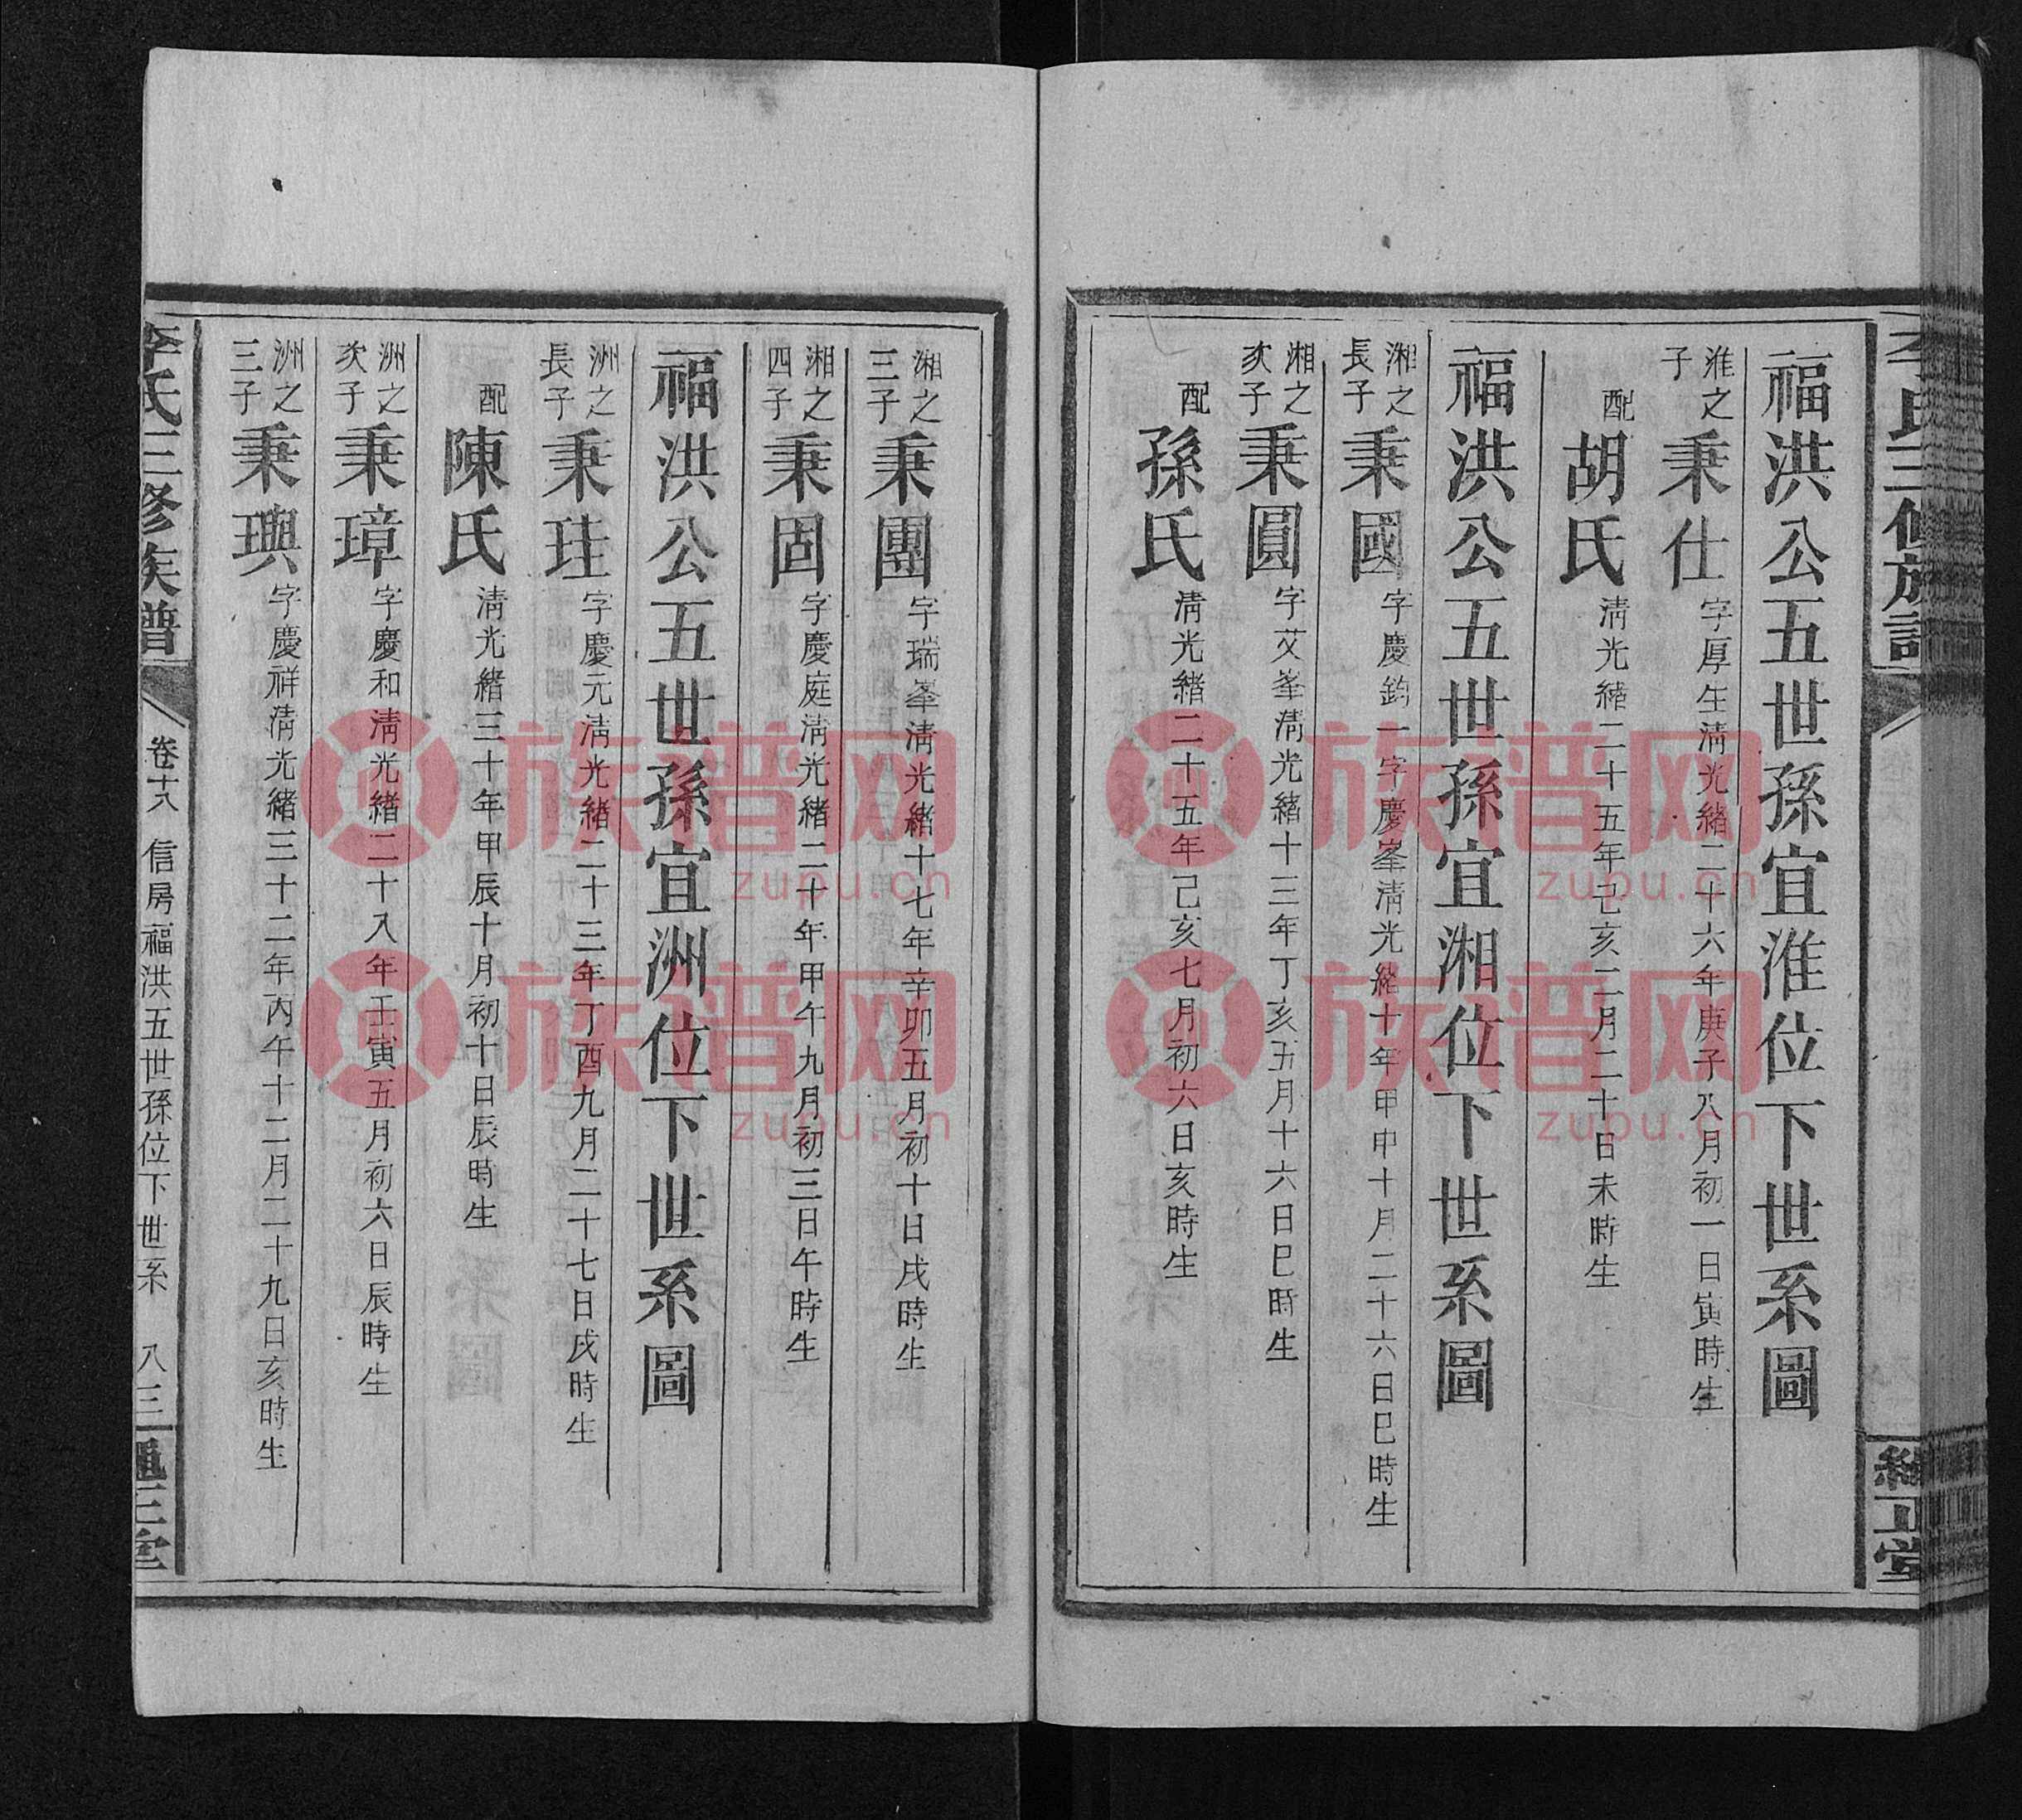 李氏三修族譜
經正堂
福洪公五世孫宜淮位下世系圖
淮之子秉仕字厚生淸光緒二十六年庚子八月初一日寅時生
配胡氏淸光緒二十五年乜亥二月二十日未時生
福洪公五世孫宜湘位下世系圖
湘之長子秉國字慶鈞一字慶峯淸光緒十年甲申十月二十六日巳時生
湘之次子秉圓字艾峯淸光緒十三年丁亥五月十六日巳時生
配孫氏淸光緒二十五年己亥七月初六日亥時生
湘之三子秉團字瑞峯淸光緒十七年辛卯五月初十日戌時生
湘之四子秉固字慶庭淸光緒二十年甲午九月初三日午時生
福洪公五世孫宜洲位下世系圖
洲之長子秉珪字慶元淸光緒二十三年丁酉九月二十七日戌時生
配陳氏淸光緒三十年甲辰十月初十日辰時生
洲之次子秉璋字慶和淸光緒二十八年壬寅五月初六日辰時生
洲之三子秉璵字慶祥淸光緒三十二年丙午十二月二十九日亥時生
李氏三修族譜 卷十八 信房福洪五世孫位下世系 八三
族谱网
zupu.cn
族谱网
zupu.cn
族谱网
zupu.cn
族谱网
zupu.cn